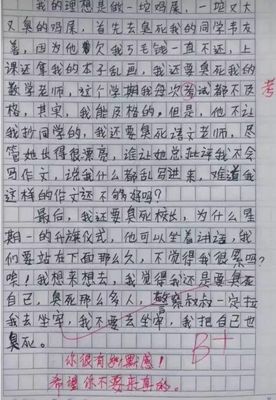 我的理想是做一坨鸡屎，一坨又大
又臭的鸡屎，首先去臭死我的同学韦友
善，因为他欠我5毛钱一直不还，上
课还拿我的本子乱画，我还要臭死我的
数学老师，这个学期我每次考试都不及
格，其实，我能及格的。但是，他不让
我抄同学的，我还要臭死语文老师，尽
管她长得很漂亮，谁让她总批评我不会
写作文，说我什么都乱写进来，难道我
这样的作文还不够好吗？
最后，我还要臭死校长，为什么星
期一的升旗仪式，他可以坐着讲话，我
们要站在下面那么久，不觉得我很累吗？
唉！我想来想去，我觉得我还是要臭死
自己，臭死那么多人，警察叔叔一定拉
我去坐牢，我不要去坐牢，我把自己也
臭死。
考
B+
你很有幽默感！
希望你不要来真的。